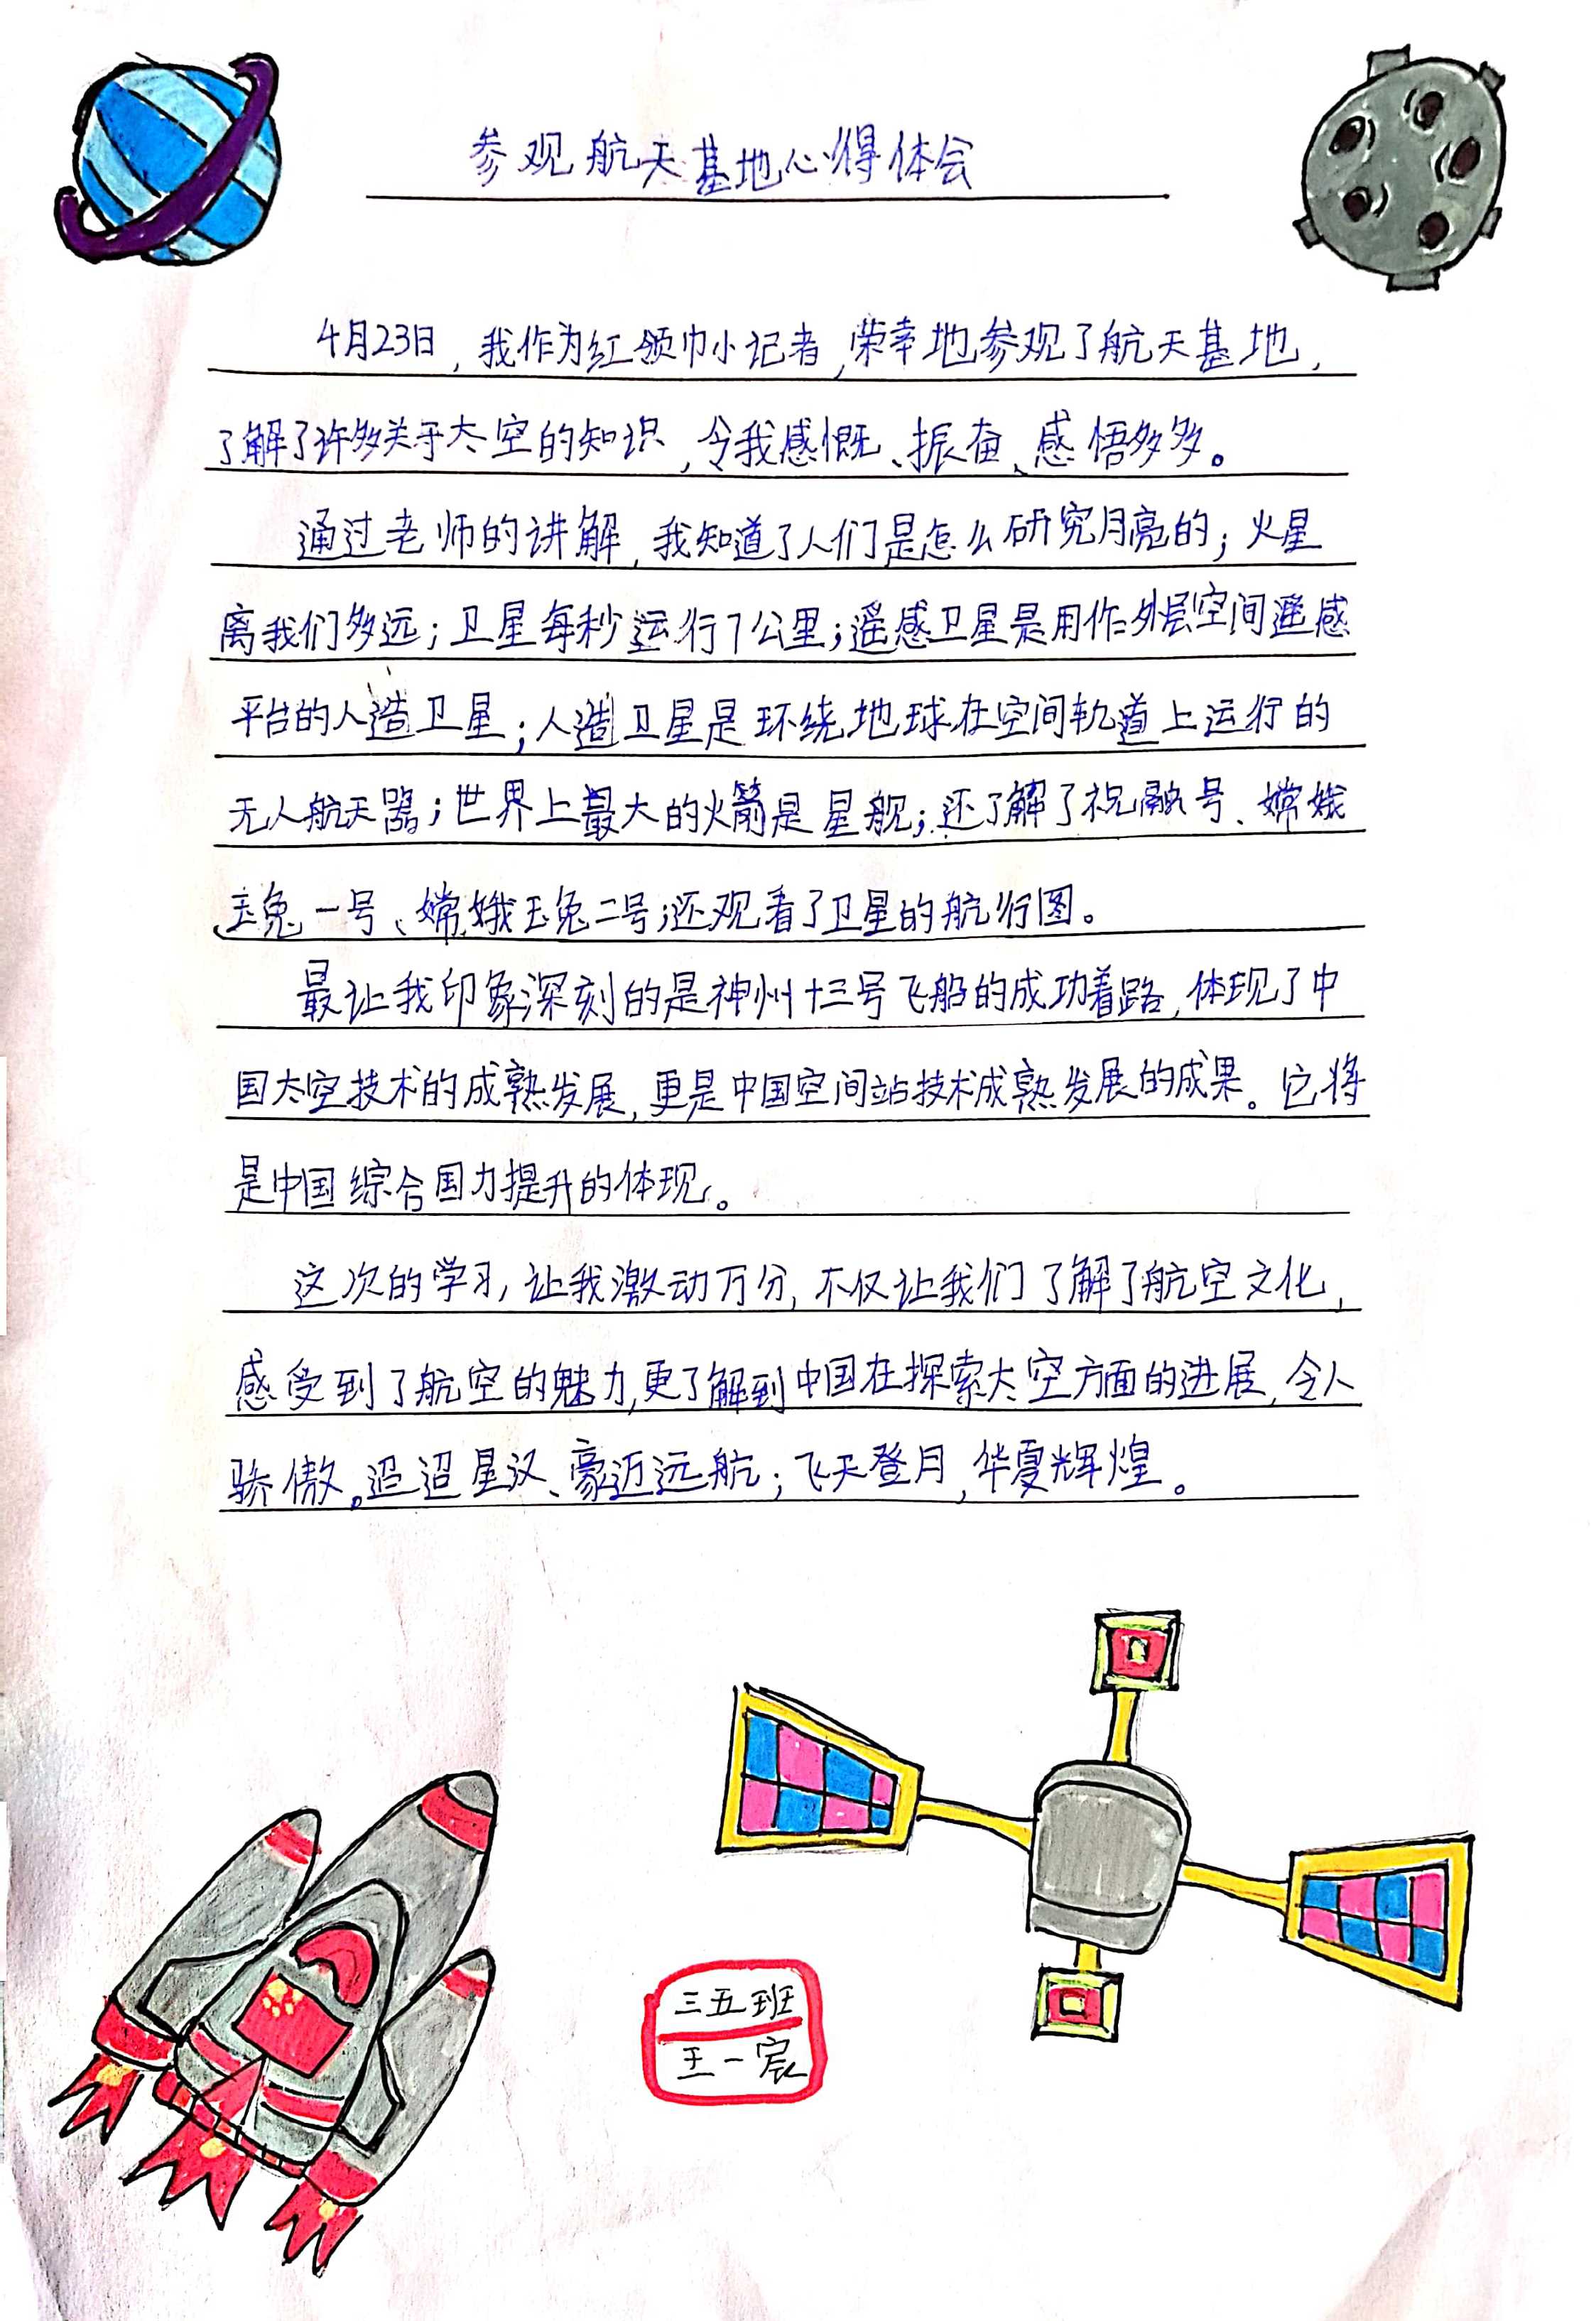 参观航天基地心得体会
4月23日，我作为红领巾小记者，荣幸地参观了航天基地，
了解了许多关于太空的知识，令我感慨、振奋、感悟多多。
通过老师的讲解，我知道了人们是怎么研究月亮的；火星
离我们多远；卫星每秒运行7公里；遥感卫星是用作外层空间遥感
平台的人造卫星；人造卫星是环绕地球在空间轨道上运行的
无人航天器；世界上最大的火箭是星舰；还了解了祝融号、嫦娥
玉兔一号、嫦娥玉兔二号；还观看了卫星的航行图。
最让我印象深刻的是神州十三号飞船的成功着路，体现了中
国太空技术的成熟发展，更是中国空间站技术成熟发展的成果。它将
是中国综合国力提升的体现。
这次的学习，让我激动万分，不仅让我们了解了航空文化，
感受到了航空的魅力，更了解到中国在探索太空方面的进展，令人
骄傲。迢迢星汉、豪迈远航；飞天登月，华夏辉煌。
三五班
王一宸